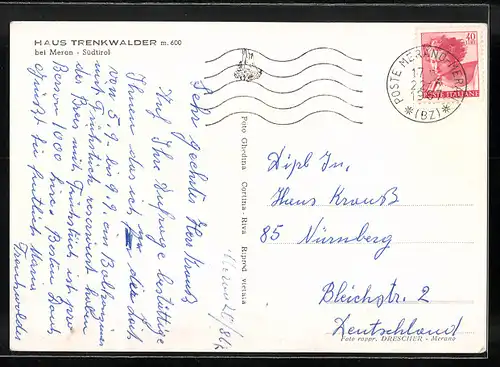 HAUS TRENKWALDER m. 600
bei Meran - Südtirol
Sehr geehrter Herr Krauß
Auf Ihre Anfrage bestättige
Ihnen das ich in der Zeit
vom 5.9. bis 9.9. ein Balkonzimmer
mit Frühstück reserviert haben
der Preis mit Frühstück ist pro
Person 1000 Lire. Besten Dank,
Grüßt Sie herzlich Maria
Trenkwalder
Foto Ghedina Cortina-Riva Riprod. vietata
POSTE MERANO-MERAN
17
(BZ)
40
LIRE
POSTE ITALIANE
Dipl In,
Hans Krauß
85 Nürnberg
Bleichstr. 2
Deutschland
Foto rappr. DRESCHER - Merano